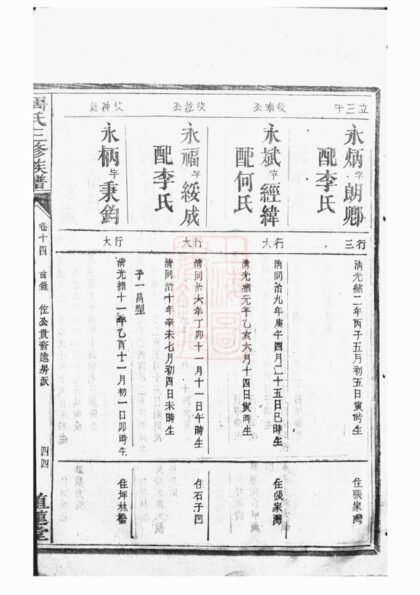 立三子
永炳字朗卿
配李氏
行三
清光緒二年丙子五月初五日寅時生
住張家灣
永斌字經緯
配何氏
行大
清同治九年庚午四月二十五日巳時生
清光緒元年乙亥六月十四日寅時生
住張家灣
永福字綏成
配李氏
行大
清同治六年丁卯十一月十一日午時生
清同治十年辛未七月初四日未時生
子一昌型
住石子凹
永柄字秉鈞
行大
清光緒十一年乙酉十一月初一日卯時生
住坪林橋
周氏三修族譜
卷十四
四四